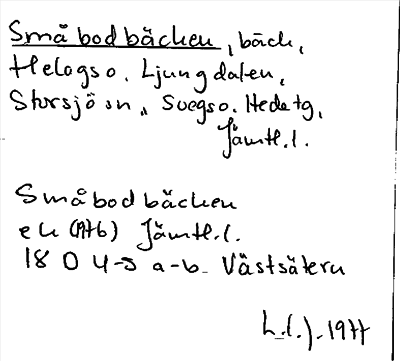 Småbodbäcken, bäck,
Helagsö. Ljungdalen,
Storsjö sn, Svegs o. Hede tg,
Jämtl. l.
Småbodbäcken
ek (1976) Jämtl. l.
18 D 4-5 a-b. Västsätern
1977